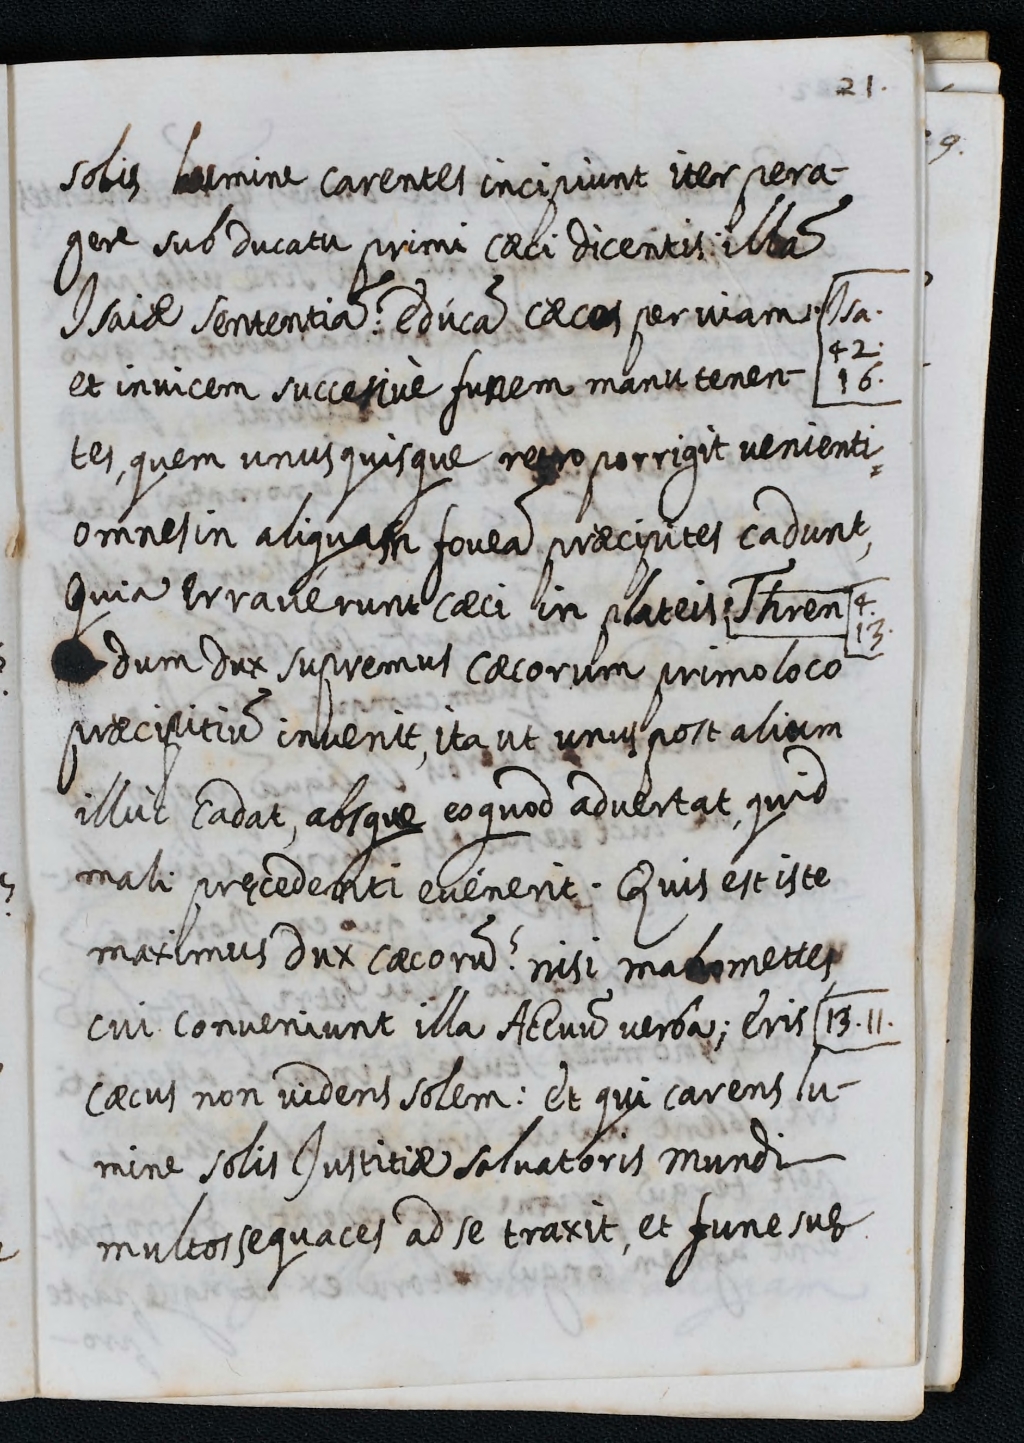 21.
solis lumine carentes incipiunt iter pera-
gere sub ducatu primi cæci dicentis illã
Isaiæ sententiã: edúcã cæcos per viam: Isa.
42.
16.
et invicem succesivè funem manu tenen-
tes, quem unusquisque retro porrigit venienti,
omnes in aliquam foveã præcipites cadunt,
Quia erravérunt cæci in plateis: Thren 4.
13.
dum dux supremus cæcorum primo loco
præcipitiũ invenit, ita ut unus post alium
illuc cadat, absque eo quod advertat, quid
mali pręcedenti evénerit. Quis est iste
maximus dux cæcorũ? nisi mahomettes,
cui conveniunt illa Actuũ verba; Eris 13.11.
cæcus non videns solem: Et qui carens lu-
mine solis Justitiæ salvatoris mundi
multos sequaces ad se traxit, et fune suę
9.